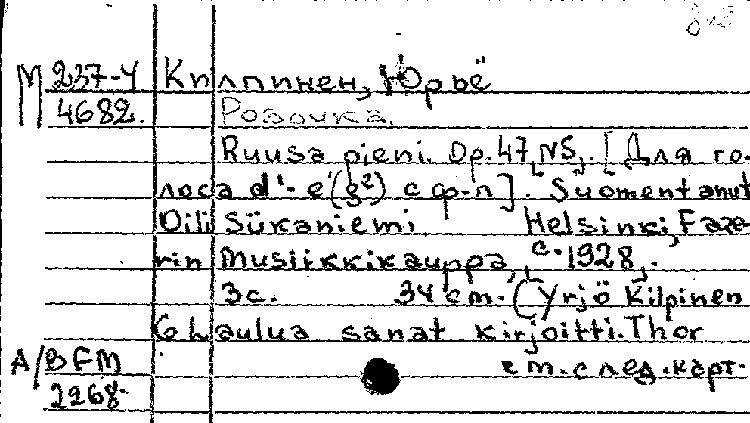 М 237-4 Килпинен, Юрьё
4682. Розочка.
Ruusa pieni. Op. 47, N5. [Для го-
лоса d¹-e²(g²) с ф-п]. Suomentanut
Oili Siikaniemi. Helsinki, Faze-
rin Musiikkikauppa, c. 1928.
3с. 34 cm. (Yrjö Kilpinen
6 Laulua sanat kirjoitti. Thor
А/BFM см. след. карт.
2268.